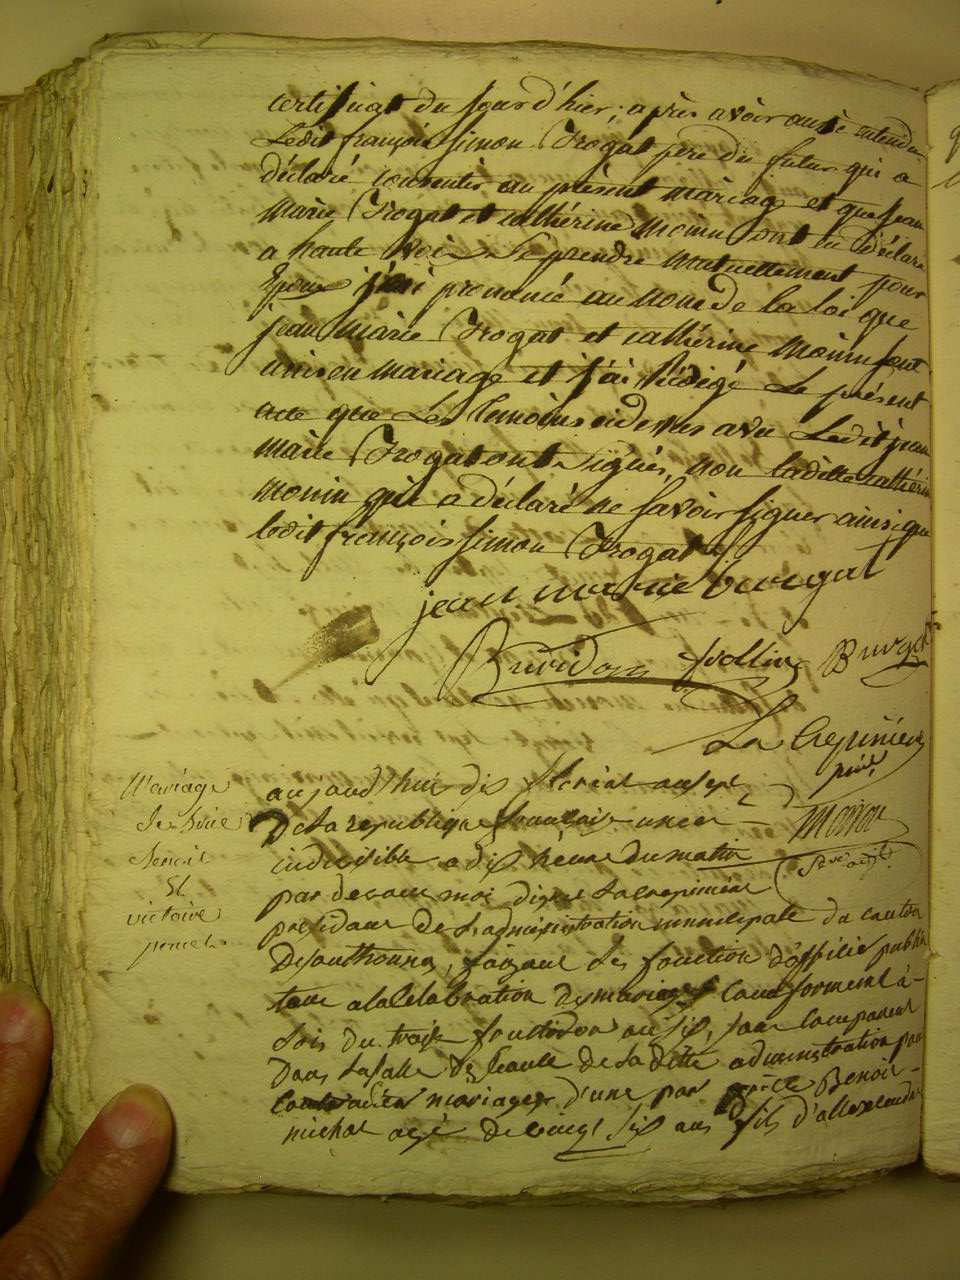 certificat du jour d'hier, après avoir aussi entendu
Ledit françois Simon Trogat pere du futur qui a
déclaré consentir au présent mariage et que Jean
Marie Trogat et cathérine Monin ont eu déclaré
a haute voix Se prendre Mutuellement pour
Epoux j'ai prononcé au nom de la loi que
jean marie Trogat et cathérine Monin sont
unis en mariage et j'ai Rédigé Le présent
acte que Les temoins avec Ledit jean
Marie Trogat ont Signés, non ladite cathérine
Monin qui a déclaré ne Savoir Signer ainsi que
ledit françois Simon Trogat
jean marie trogat
La Crepiniere
présid.
Mariage
Benoit
Et
victoire
aujourd'hui dix floréal an sept
De la republique francaise une et
indivisible a dix heures du matin
par devant moi Lacrepiniere
presidant de L'administration municipale du canton
faisant Les fonction d'officie public
tant a la Celebration des mariages Conformement à
Lois du treize fructidor an six, sont Comparu
Dans La Salle de La ditte administration pour
Contracter mariage d'une part Benoit
michat agé de vingt Six ans fils d'allexandre